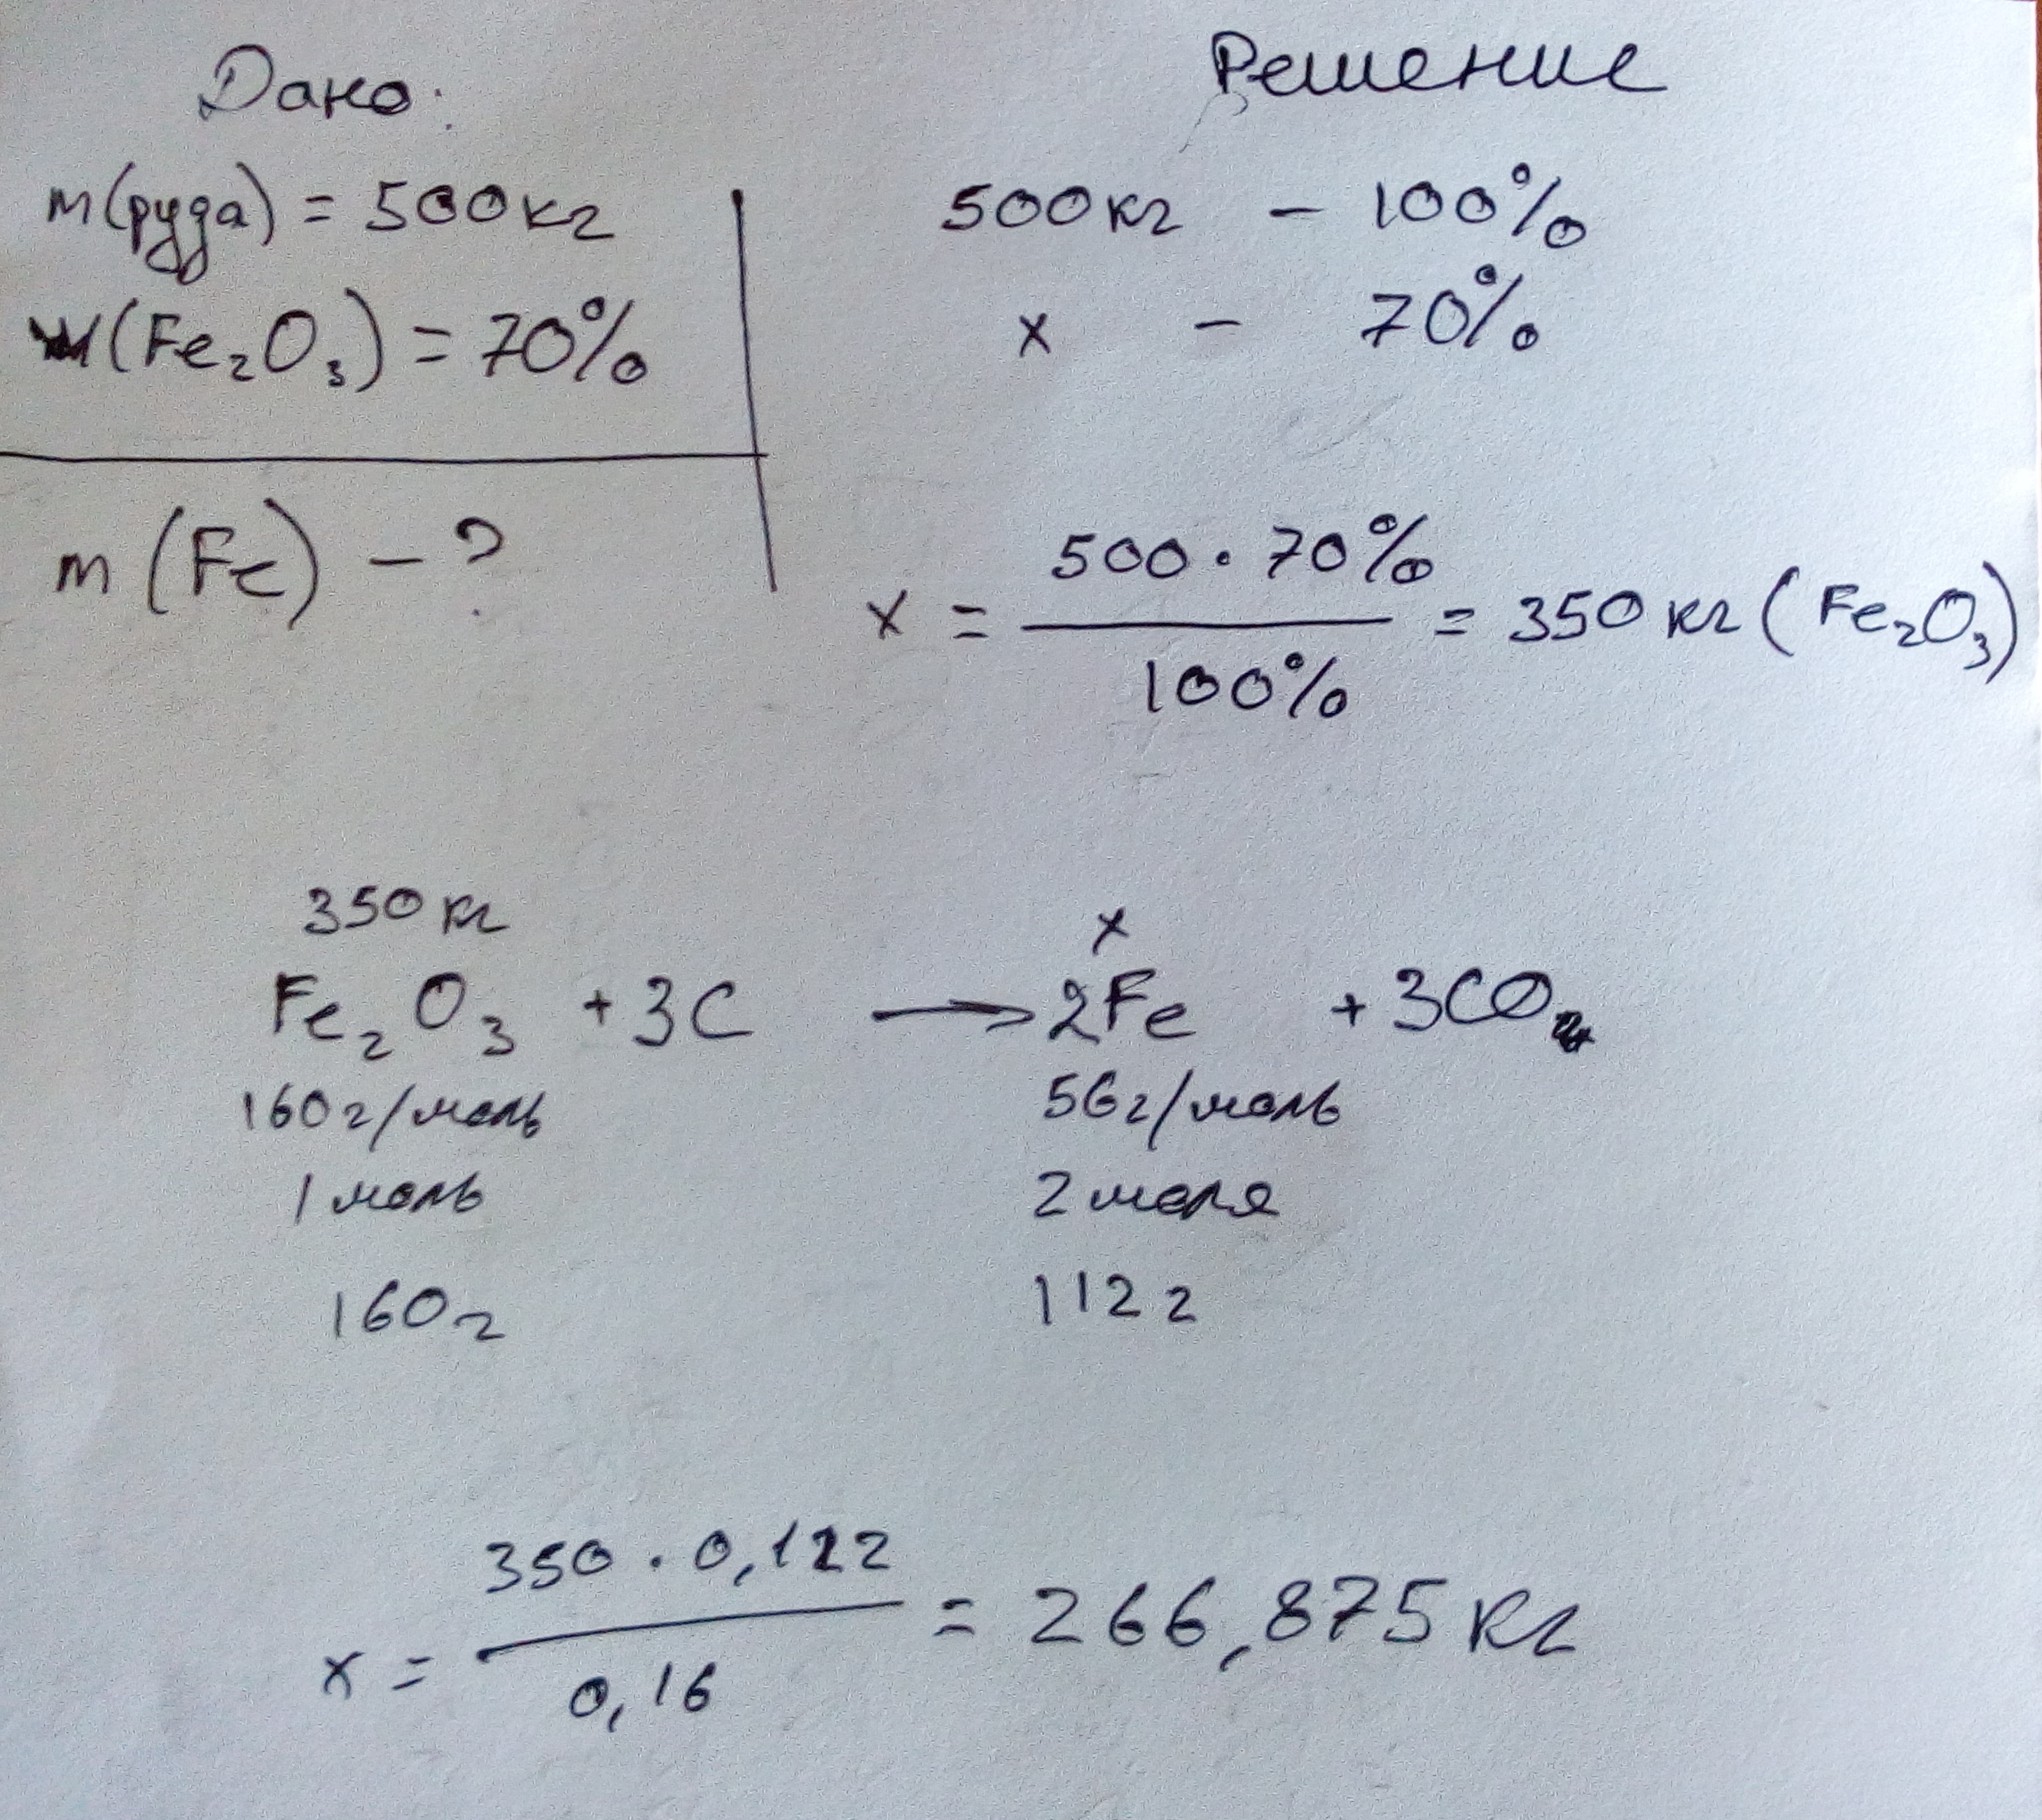 Дано:
m(руда) = 500кг
(Fe₂O₃) = 70%
m(Fe) - ?
Решение
500кг - 100%
x - 70%
x = 500 · 70% / 100% = 350 кг (Fe₂O₃)
350 кг x
Fe₂O₃ + 3C → 2Fe + 3CO
160г/моль 56г/моль
1 моль 2 моля
160г 112г
x = 350 · 0,122 / 0,16 = 266,875 кг